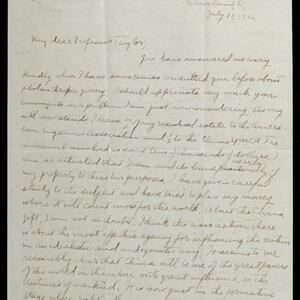 Cleveland, O.
July 19,
My dear Professor Taylor,
You have answered me very
kindly when I have sometimes consulted you before about
philanthropic giving. I should appreciate very much your
comments on a problem I am just now considering. As my
will now stands I leave 1/2 of my residual estate to the Ameri-
can Eugenics Association and 1/2 to the China
amount involved is some tens of thousands of dollars. I
am so situated that I can will to leave practically
my property to these two purposes. I have given careful
study to the subject and have tried to place my money
where it will count most for the world. About the China
gift, I am not in doubt. I think the association there
is about the most effective agency for influencing the nation
in an idealistic and undogmatic way. It seems to me
reasonably clear that China will be one of the great powers
of the world in the future with great influence in the
destinies of mankind. It is now just in the formative
stage where